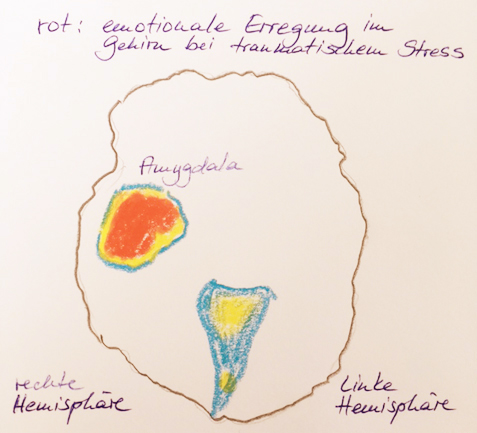 rot: emotionale Erregung im
Gehirn bei traumatischem Stress
Amygdala
rechte
Hemisphäre
Linke
Hemisphäre